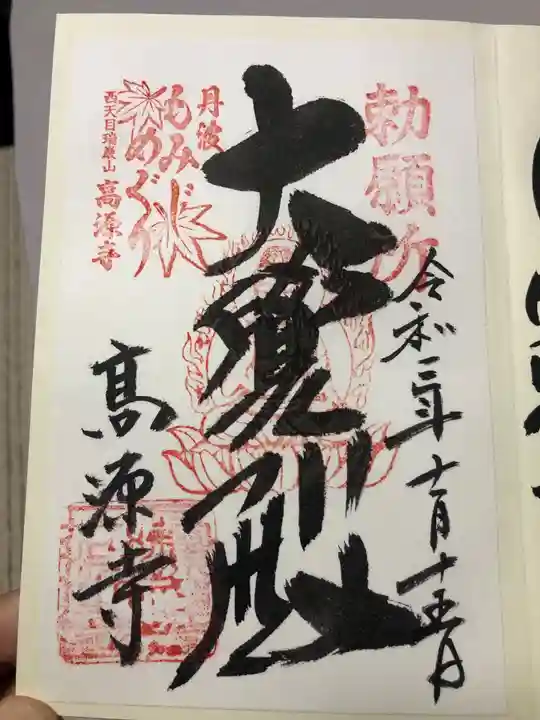 勅願所
令和三年十一月十五日
大覺殿
丹波
もみじ
めぐり
西天目瑞巌山 高源寺
高源寺